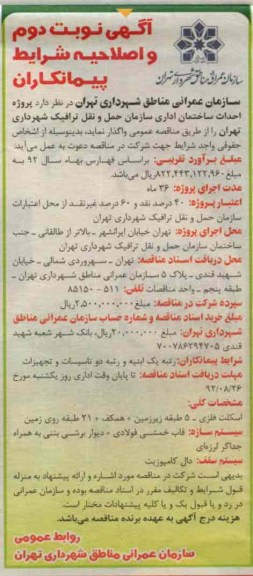 آگهی نوبت دوم
و اصلاحیه شرایط
پیمانکاران
سازمان عمرانی مناطق شهرداری تهران
سازمان عمرانی مناطق شهرداری تهران در نظر دارد پروژه
احداث ساختمان اداری سازمان حمل و نقل ترافیک شهرداری
تهران را از طریق مناقصه عمومی واگذار نماید، بدینوسیله از اشخاص
حقوقی واجد شرایط جهت شرکت در مناقصه دعوت به عمل می‌آید
مبلغ برآورد تقریبی: براساس فهارس بهاء سال ۹۲ به
مبلغ ۸۲۲,۴۴۳,۱۲۲,۹۶۰ریال می‌باشد.
مدت اجرای پروژه: ۳۶ ماه
اعتبار پروژه: ۴۰ درصد نقد و ۶۰ درصد غیرنقد از محل اعتبارات
سازمان حمل و نقل ترافیک شهرداری تهران
محل اجرای پروژه: تهران خیابان ایرانشهر - بالاتر از طالقانی - جنب
ساختمان سازمان حمل و نقل ترافیک شهرداری تهران
محل دریافت اسناد مناقصه: تهران - سهروردی شمالی - خیابان
شهید قندی - پلاک ۵ سازمان عمرانی مناطق شهرداری تهران -
طبقه پنجم - واحد مناقصات تلفن: ۵۱۱ - ۸۵۱۵۰
سپرده شرکت در مناقصه: مبلغ ۲,۵۰۰,۰۰۰,۰۰۰ریال
مبلغ خرید اسناد مناقصه و شماره حساب سازمان عمرانی مناطق
شهرداری تهران: مبلغ ۲,۰۰۰,۰۰۰ریال، بانک شهر شعبه شهید
قندی ۷۰۰۷۸۶۲۹۴۷۰۵
شرایط پیمانکاران: رتبه یک ابنیه و رتبه دو تاسیسات و تجهیزات
مهلت دریافت اسناد مناقصه: تا پایان وقت اداری روز یکشنبه مورخ
۹۲/۰۸/۲۶
مشخصات کلی:
اسکلت فلزی - ۵ طبقه زیرزمین + همکف + ۲۱ طبقه روی زمین
سیستم سازه: قاب خمشی فولادی + دیوار برشی بتنی به همراه
جداگر لرزه‌ای
سیستم سقف: دال کامپوزیت
بدیهی است شرکت در مناقصه مورد اشاره و ارائه پیشنهاد به منزله
قبول شرایط و تکالیف مقرر در اسناد مناقصه بوده و سازمان عمرانی
در رد و یا قبول یک و یا کلیه پیشنهادات مختار است.
هزینه درج آگهی به عهده برنده مناقصه می‌باشد.
روابط عمومی
سازمان عمرانی مناطق شهرداری تهران